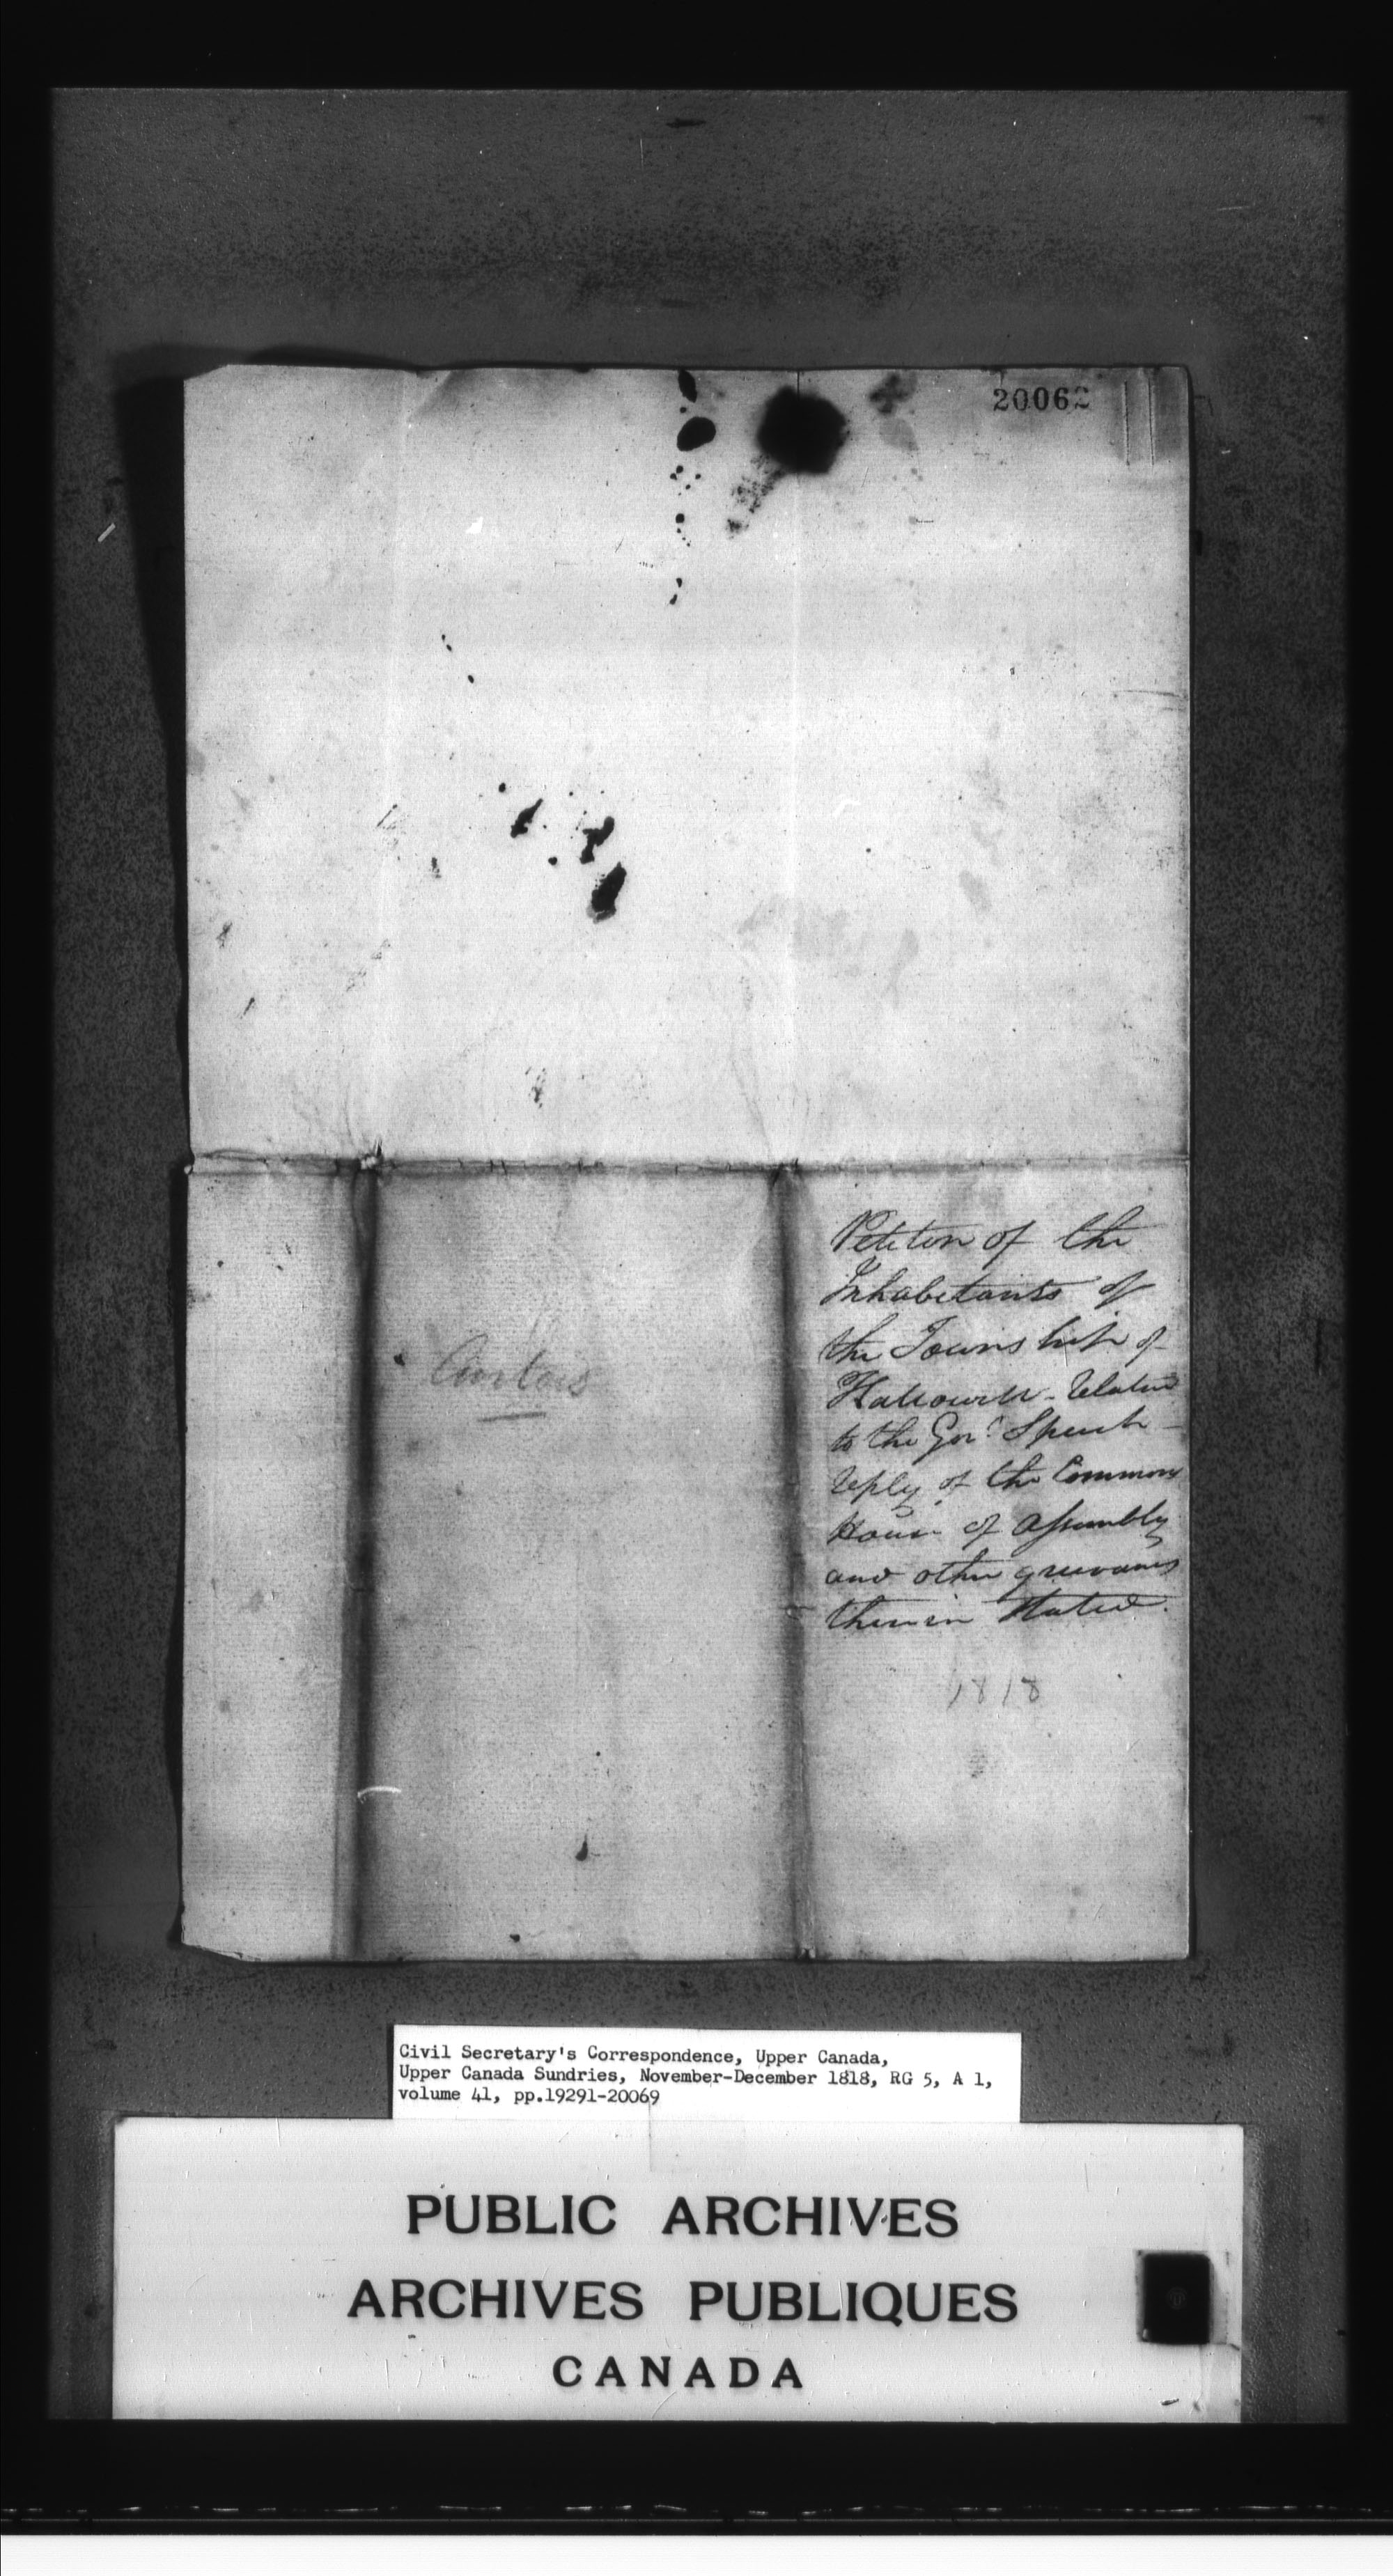 20062
Petition of the
Inhabetants of
the Township of
Hallowell - Relative
to the Gov.r Speech -
Reply of the Commons
House of Assembly
and other grievances
therein Stated.
1818
Civil Secretary's Correspondence, Upper Canada,
Upper Canada Sundries, November-December 1818, RG 5, A 1,
volume 41, pp.19291-20069
PUBLIC ARCHIVES
ARCHIVES PUBLIQUES
CANADA